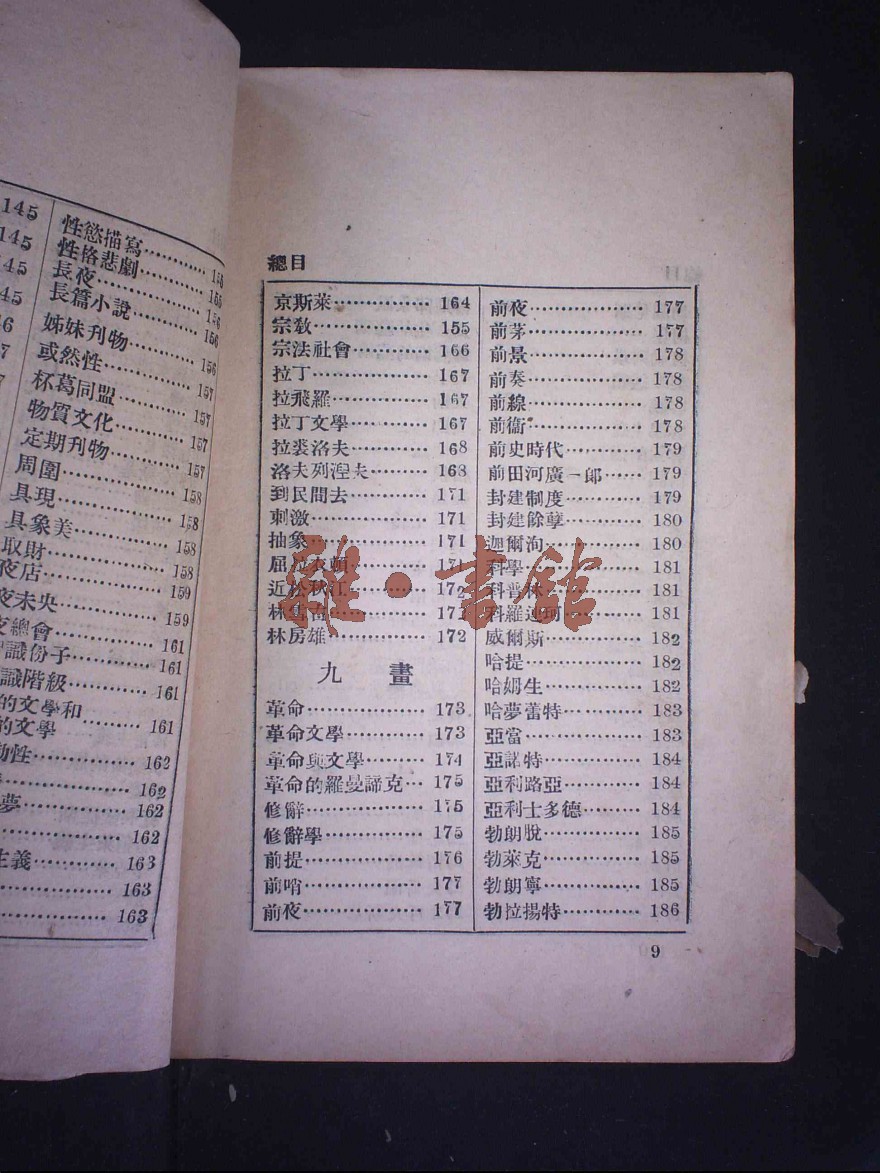 145
145
145
145
46
性慾描寫 156
性格悲劇 156
長夜 156
長篇小說 156
姊妹刊物 156
或然性 157
杯葛同盟 157
物質文化 157
定期刊物 157
周圍 158
具現 158
具象美 158
取財 158
夜店 159
夜未央 159
夜總會 161
識份子 161
識階級 161
的文學和
的文學 161
動性 162
162
夢 162
162
主義 163
163
163
總目
京斯萊 164
宗教 155
宗法社會 166
拉丁 167
拉飛羅 167
拉丁文學 167
拉裘洛夫 168
洛夫列湼夫 168
到民間去 171
刺激 171
抽象 171
屈 171
近松秋江 172
林 171
林房雄 172
九畫
革命 173
革命文學 173
革命與文學 174
革命的羅曼諦克 175
修辭 175
修辭學 175
前提 176
前哨 177
前夜 177
前夜 177
前茅 177
前景 178
前奏 178
前線 178
前衞 178
前史時代 179
前田河廣一郎 179
封建制度 179
封建餘孽 180
迦爾洵 180
科學 181
科普林 181
科羅連珂 181
威爾斯 182
哈提 182
哈姆生 182
哈夢蕾特 183
亞當 183
亞諾特 184
亞利路亞 184
亞利士多德 184
勃朗脫 185
勃萊克 185
勃朗寧 185
勃拉揚特 186
9
雜·書館